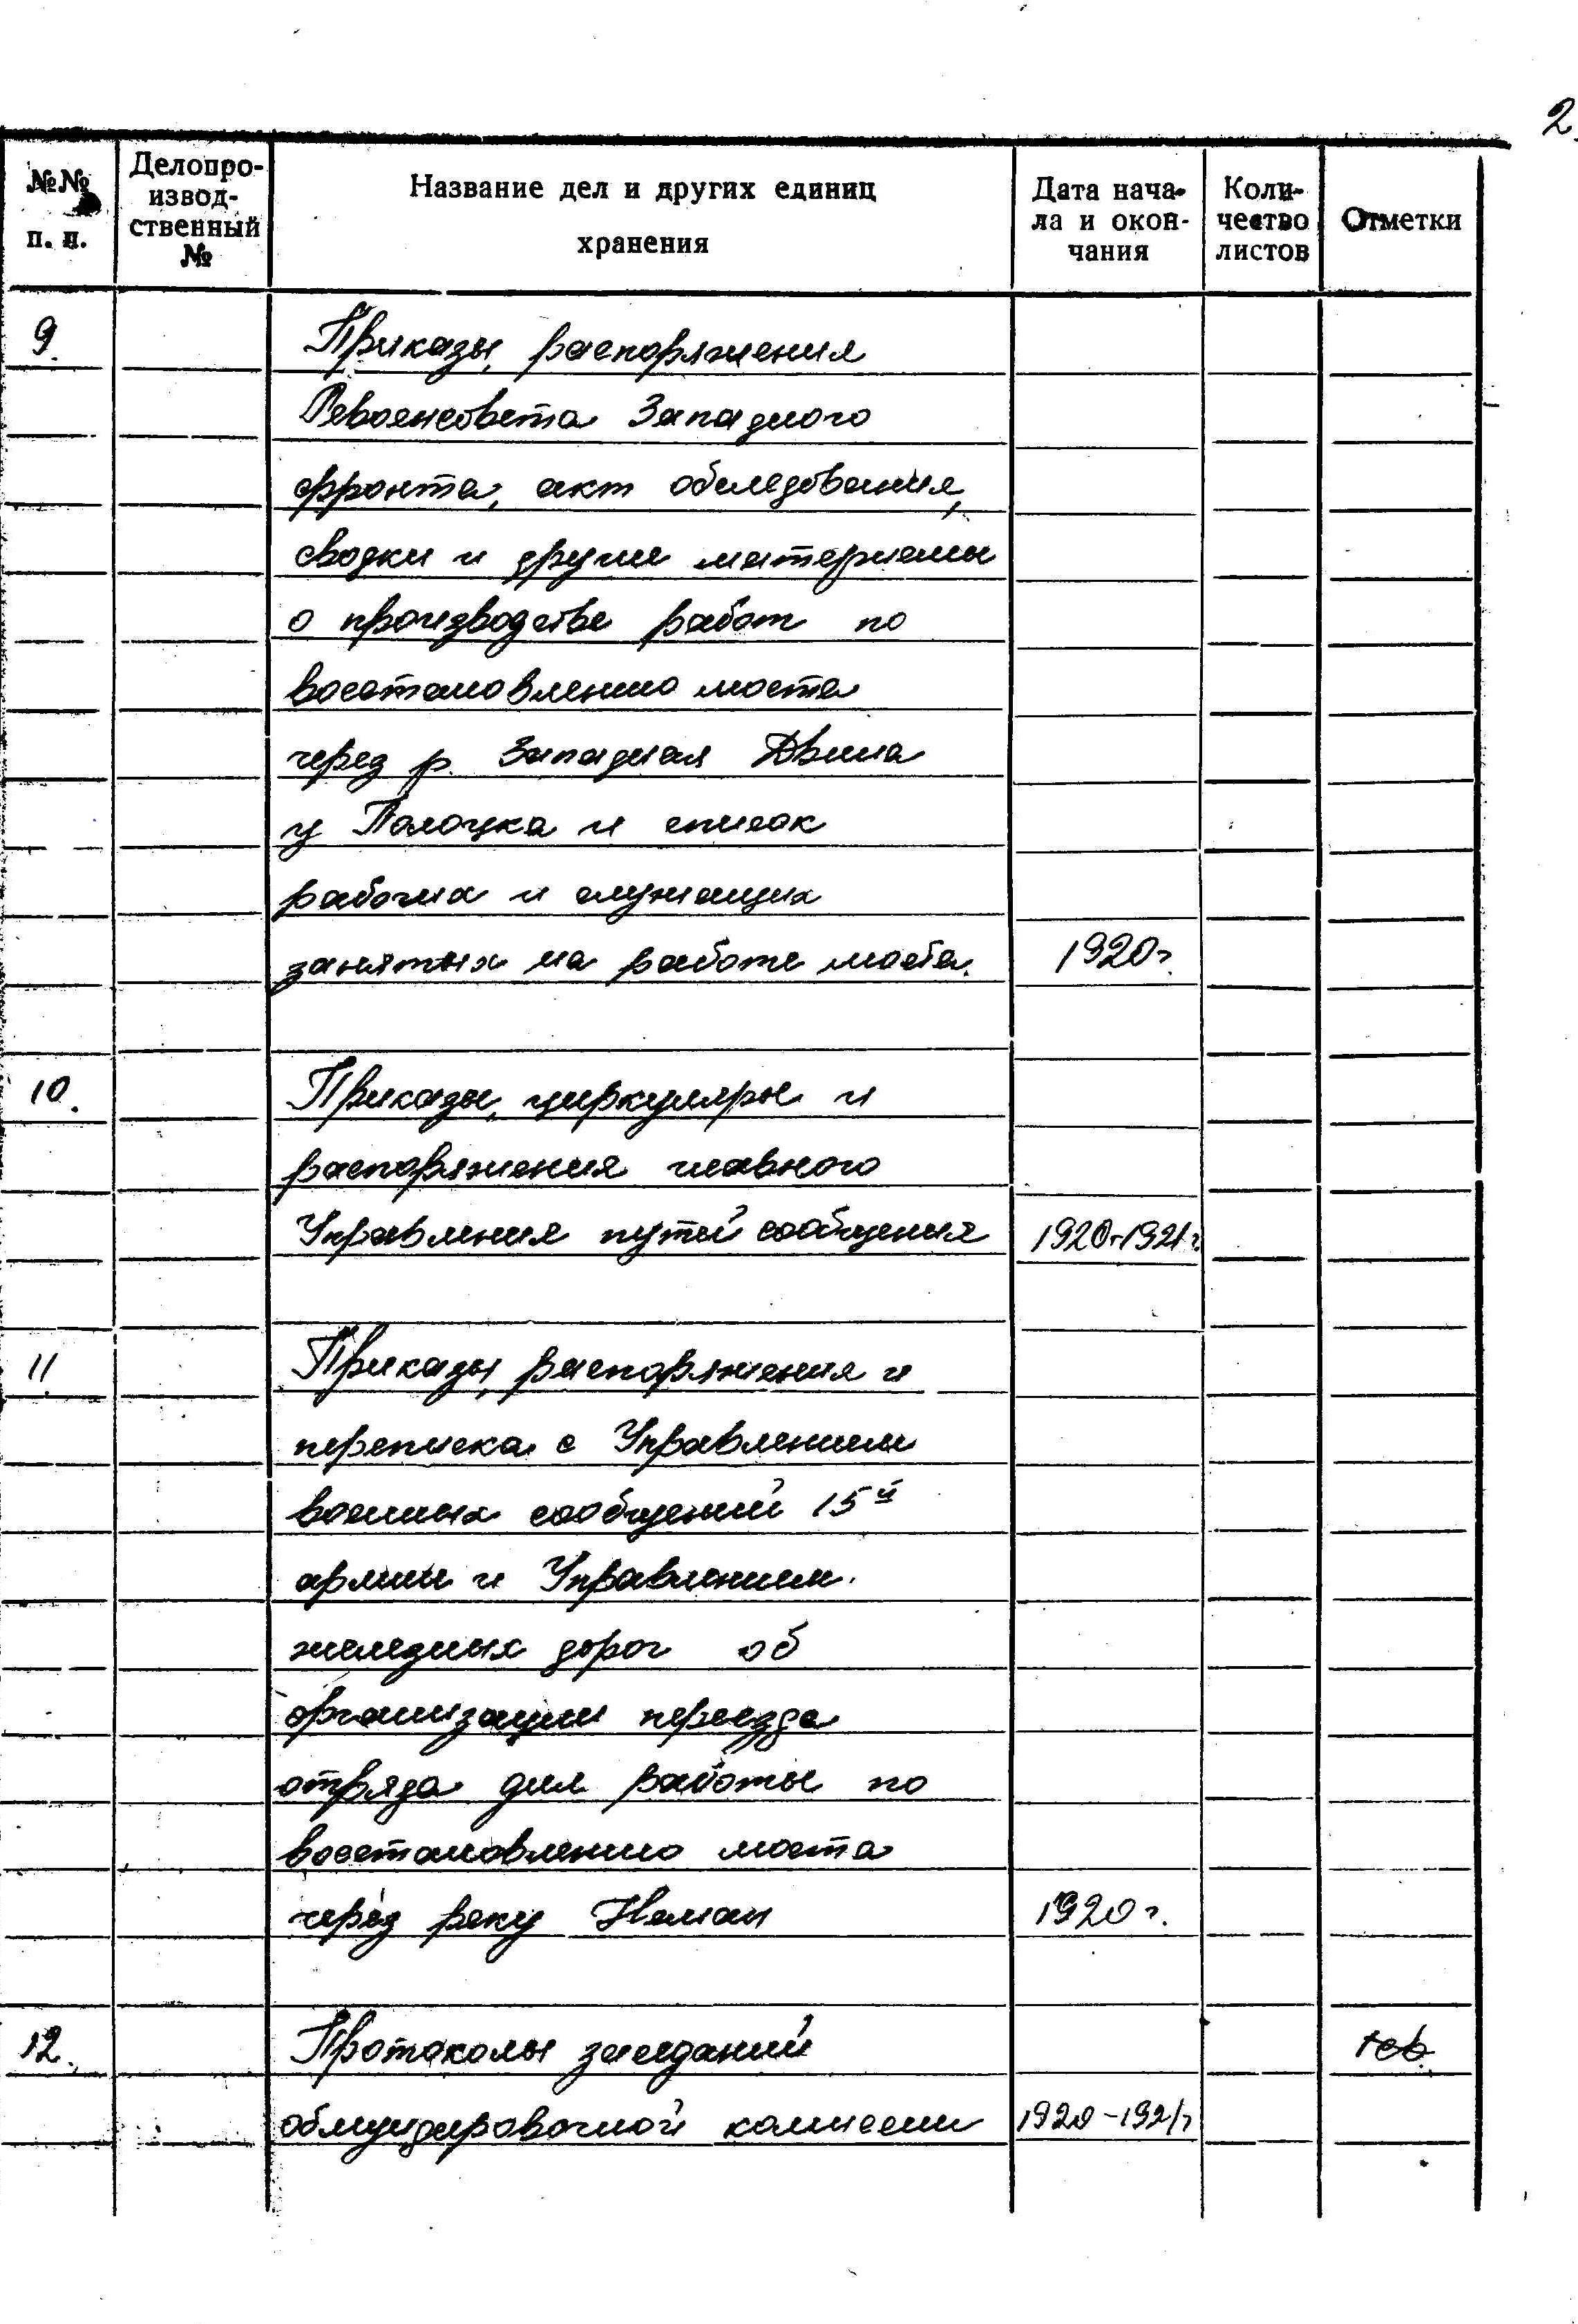 2.
№№ п. п.
Делопро-
извод-
ственный
№
Название дел и других единиц
хранения
Дата нача-
ла и окон-
чания
Коли-
чество
листов
Отметки
9. Приказы, распоряжения
Реввоенсовета Западного
фронта, акт обследования,
сводки и другие материалы
о производстве работ по
восстановлению моста
через р. Западная Двина
у Полоцка и список
рабочих и служащих
занятых на работе моста. 1920г.
10. Приказы, циркуляры и
распоряжения главного
Управления путей сообщения 1920-1921г.
11. Приказы, распоряжения и
переписка с Управлением
военных сообщений 15й
армии и Управлением
железных дорог об
организации переезда
отряда для работы по
восстановлению моста
через реку Неман 1920г.
12. Протоколы заседаний
обмундировочной комиссии 1920-1921г